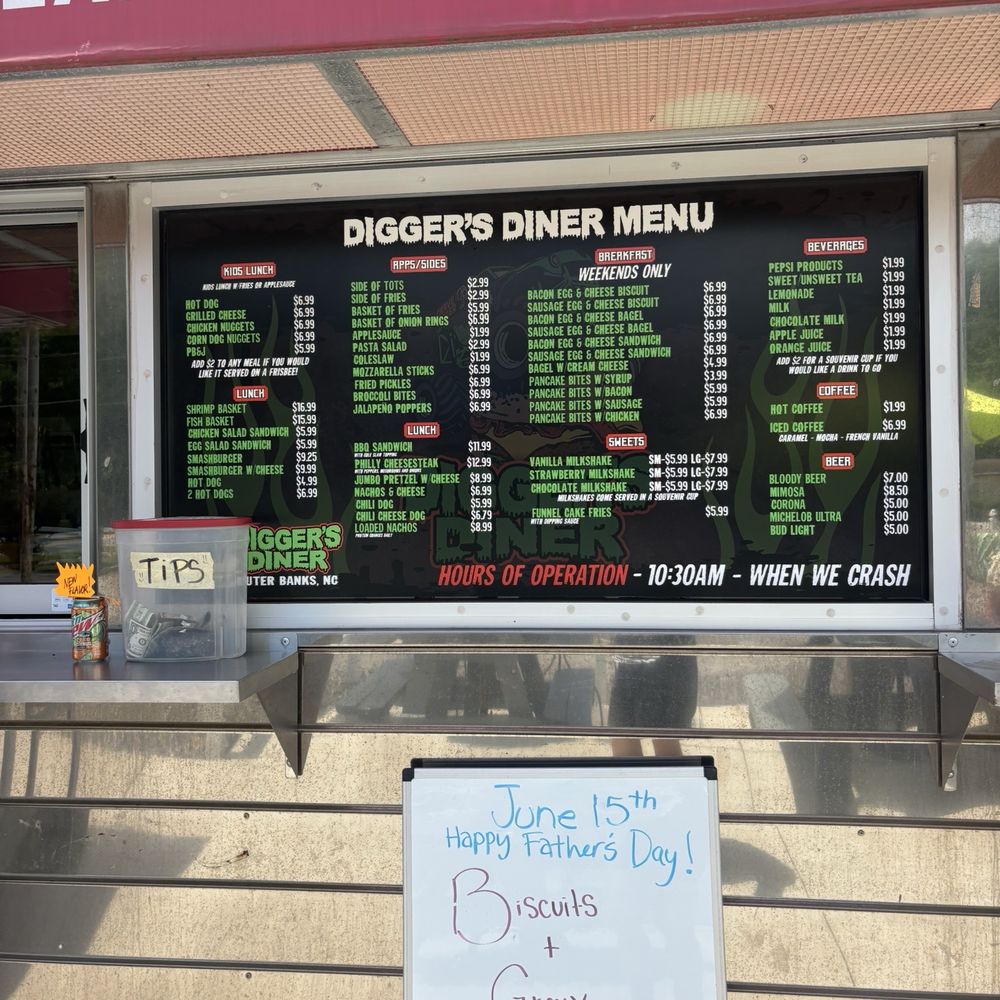 DIGGER'S DINER MENU
KIDS LUNCH
KIDS LUNCH W/FRIES OR APPLESAUCE
HOT DOG $6.99
GRILLED CHEESE $6.99
CHICKEN NUGGETS $6.99
CORN DOG NUGGETS $6.99
PB&J $5.99
ADD $2 TO ANY MEAL IF YOU WOULD
LIKE IT SERVED ON A FRISBEE!
LUNCH
SHRIMP BASKET $16.99
FISH BASKET $15.99
CHICKEN SALAD SANDWICH $5.99
EGG SALAD SANDWICH $5.99
SMASHBURGER $9.25
SMASHBURGER W CHEESE $9.99
HOT DOG $4.99
2 HOT DOGS $6.99
APPS/SIDES
SIDE OF TOTS $2.99
SIDE OF FRIES $2.99
BASKET OF FRIES $6.99
BASKET OF ONION RINGS $6.99
APPLESAUCE $1.99
PASTA SALAD $2.99
COLESLAW $1.99
MOZZARELLA STICKS $6.99
FRIED PICKLES $6.99
BROCCOLI BITES $6.99
JALAPEÑO POPPERS $6.99
LUNCH
BBQ SANDWICH $11.99
WITH COLE SLAW TOPPING
PHILLY CHEESESTEAK $12.99
WITH PEPPERS, MUSHROOMS AND ONIONS
JUMBO PRETZEL W CHEESE $8.99
NACHOS & CHEESE $6.99
CHILI DOG $5.99
CHILI CHEESE DOG $6.79
LOADED NACHOS $8.99
BREAKFAST
WEEKENDS ONLY
BACON EGG & CHEESE BISCUIT $6.99
SAUSAGE EGG & CHEESE BISCUIT $6.99
BACON EGG & CHEESE BAGEL $6.99
SAUSAGE EGG & CHEESE BAGEL $6.99
BACON EGG & CHEESE SANDWICH $6.99
SAUSAGE EGG & CHEESE SANDWICH $6.99
BAGEL W CREAM CHEESE $4.99
PANCAKE BITES W SYRUP $3.99
PANCAKE BITES W/BACON $5.99
PANCAKE BITES W/SAUSAGE $5.99
PANCAKE BITES W/ CHICKEN $6.99
SWEETS
VANILLA MILKSHAKE SM-$5.99 LG-$7.99
STRAWBERRY MILKSHAKE SM-$5.99 LG-$7.99
CHOCOLATE MILKSHAKE SM-$5.99 LG-$7.99
MILKSHAKES COME SERVED IN A SOUVENIR CUP
FUNNEL CAKE FRIES $5.99
WITH DIPPING SAUCE
BEVERAGES
PEPSI PRODUCTS $1.99
SWEET/UNSWEET TEA $1.99
LEMONADE $1.99
MILK $1.99
CHOCOLATE MILK $1.99
APPLE JUICE $1.99
ORANGE JUICE $1.99
ADD $2 FOR A SOUVENIR CUP IF YOU
WOULD LIKE A DRINK TO GO
COFFEE
HOT COFFEE $1.99
ICED COFFEE $6.99
CARAMEL - MOCHA - FRENCH VANILLA
BEER
BLOODY BEER $7.00
MIMOSA $8.50
CORONA $5.00
MICHELOB ULTRA $5.00
BUD LIGHT $5.00
DIGGER'S
DINER
HOURS OF OPERATION - 10:30AM - WHEN WE CRASH
"TIPS"
NEW
FLAVOR
June 15th
Happy Father's Day!
Biscuits
+